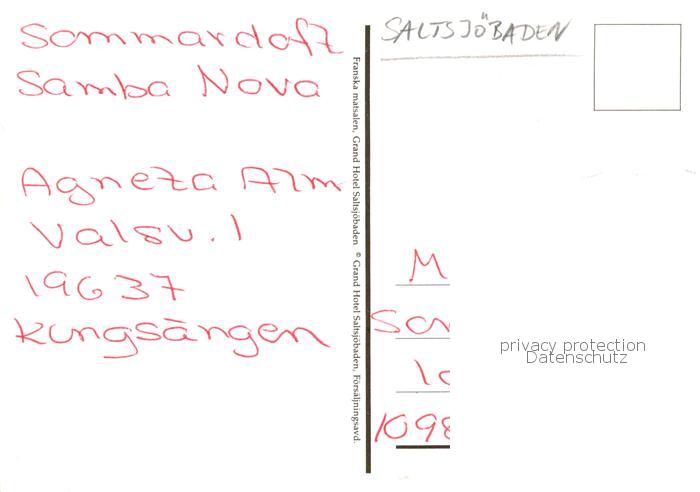 Sommardoft
Samba Nova
Agneta Alm
Valsv. 1
19637
Kungsängen
Franska matsalen, Grand Hotel Saltsjöbaden © Grand Hotel Saltsjöbaden, Försäljningsavd.
SALTSJÖBADEN
M
1098
privacy protection
Datenschutz